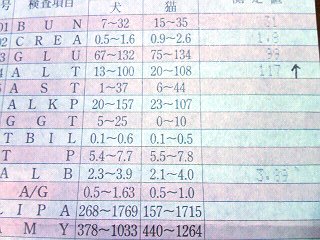 号 検査項目 犬 猫 測定値
01 B U N 7〜32 15〜35 31
02 C R E A 0.5〜1.6 0.9〜2.6 1.3
03 G L U 67〜132 75〜134 99
04 A L T 13〜100 20〜108 117 ↑
A S T 1〜37 6〜44
A L K P 20〜157 23〜107
G G T 5〜25 0〜10
T B I L 0.1〜0.6 0.1〜0.5
T P 5.4〜7.7 5.5〜7.8
A L B 2.3〜3.9 2.1〜4.0
A/G 0.5〜1.63 0.5〜1.0
L I P A 268〜1769 157〜1715
A M Y 378〜1033 440〜1264